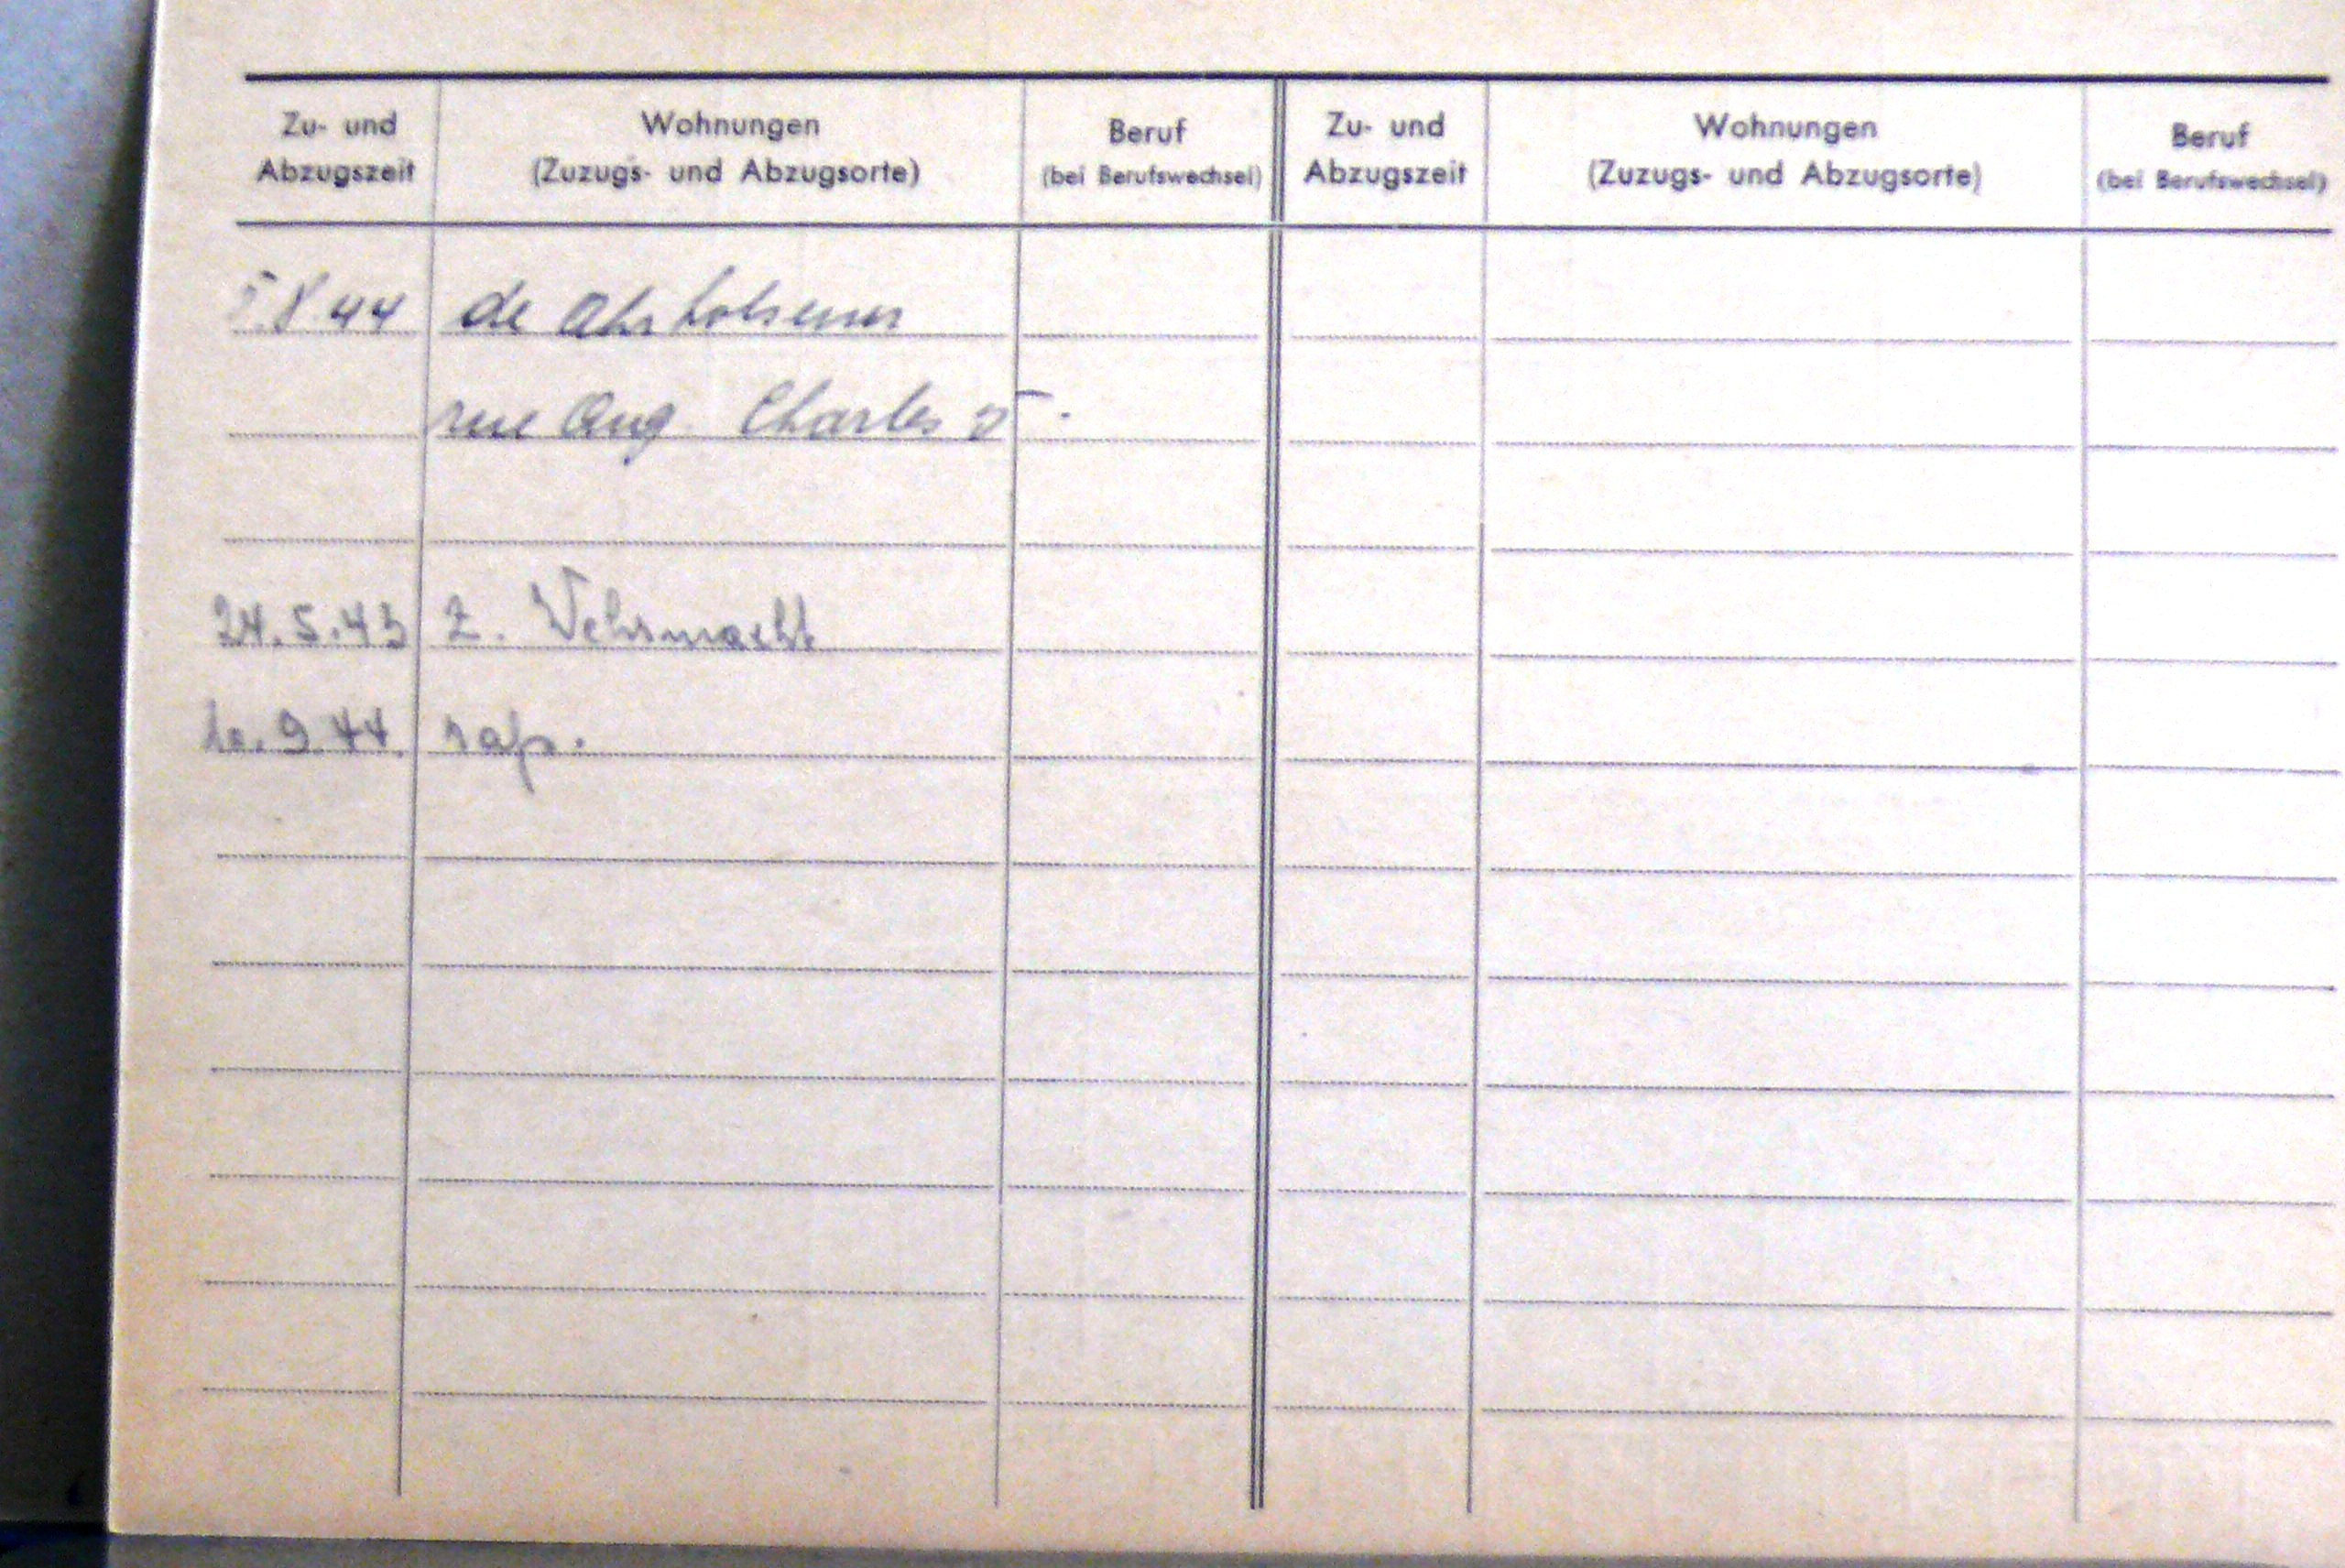 Zu- und Abzugszeit
Wohnungen (Zuzugs- und Abzugsorte)
Beruf (bei Berufswechsel)
Zu- und Abzugszeit
Wohnungen (Zuzugs- und Abzugsorte)
Beruf (bei Berufswechsel)
5.8 44 de
rue Aug. Charles 5.
24.5.43 Z. Wehrmacht
9.44. rap.